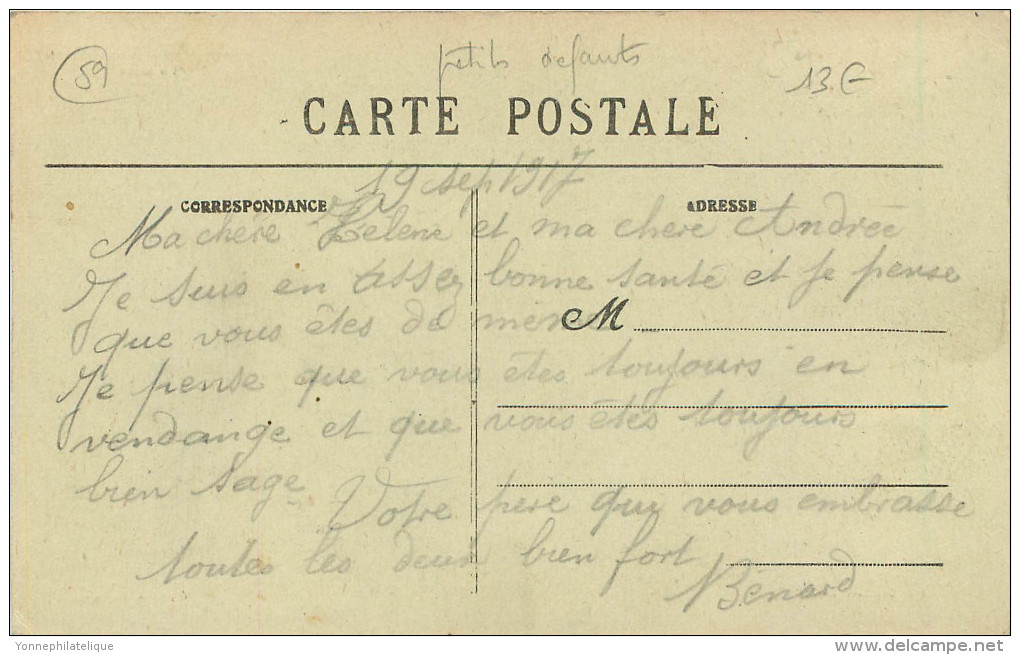 59
petits defauts
13 €
CARTE POSTALE
19 sep 1917
CORRESPONDANCE
ADRESSE
Ma chère Helene et ma chere Andrée
Je suis en assez bonne santé et je pense
que vous êtes de meme
M
Je pense que vous êtes toujours en
vendange et que vous êtes toujours
bien sage
Votre père qui vous embrasse
toutes les deux bien fort
Benard
Yonnephilatelique
www.delcampe.net